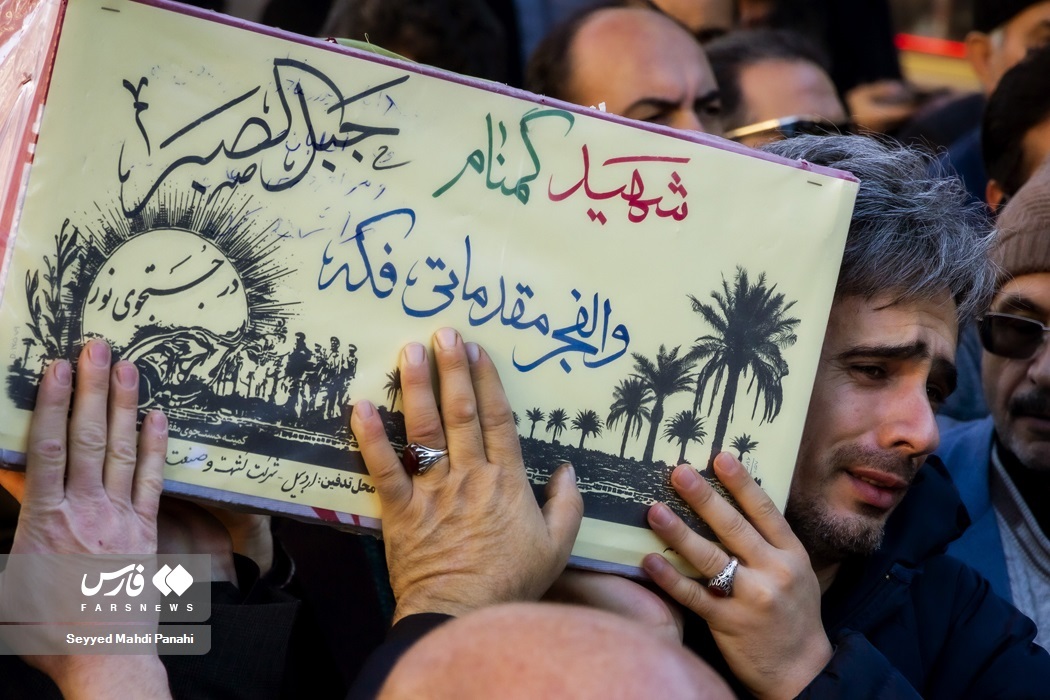 شهید گمنام
جبل الصبر
والفجر مقدماتی فکه
در جستجوی نور
کمیته جستجوی مفقودین
محل تدفین: اردبیل -
فارس
FARSNEWS
Seyyed Mahdi Panahi